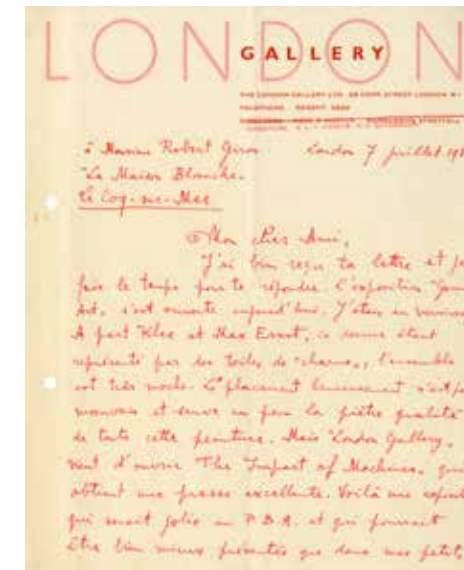 LONDON
GALLERY
THE LONDON GALLERY LTD 28 CORK STREET LONDON W1
TELEPHONE REGENT
à Monsieur Robert Giron London 7 juillet
"La Maison Blanche"
Le Coq-sur-Mer
Mon cher Ami,
J'ai bien reçu ta lettre et je
le temps pour te répondre. L'exposition
Art, s'est ouverte aujourd'hui. J'étais au
A part Klee et Max Ernst, ce dernier étant
représenté par des toiles de "charme", l'ensemble
est très moche. Le placement heureusement n'est
mauvais et sauve un peu la piètre qualité
de toute cette peinture. Mais "London Gallery"
vient d'ouvrir "The Impact of Machines" qui
obtient une presse excellente. Voilà une
qui serait jolie au P.B.A. et qui pourrait
être bien mieux présentée que dans mes petits